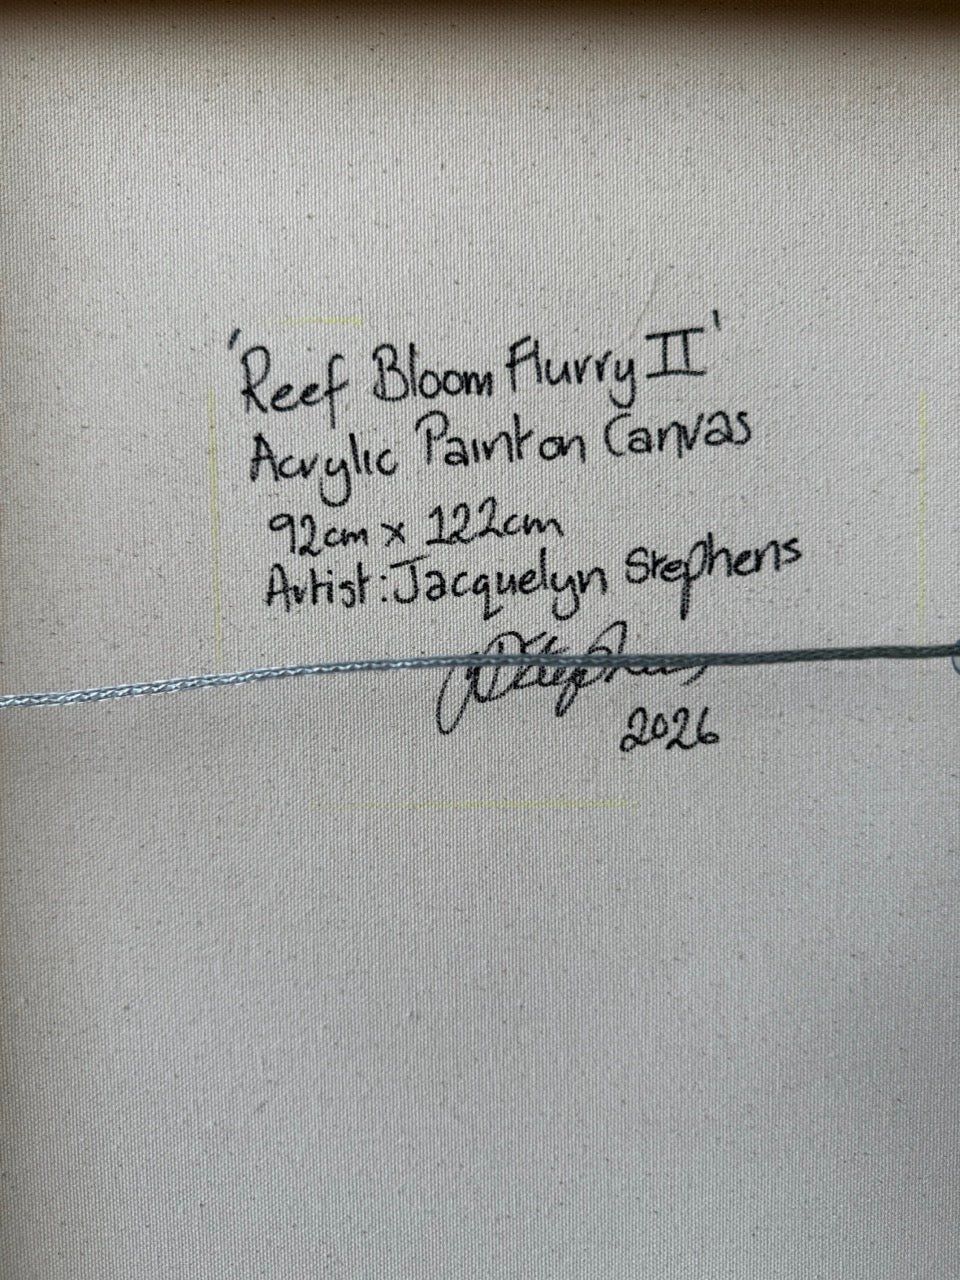 'Reef Bloom Flurry II'
Acrylic Paint on Canvas
92cm x 122cm
Artist: Jacquelyn Stephens
2026